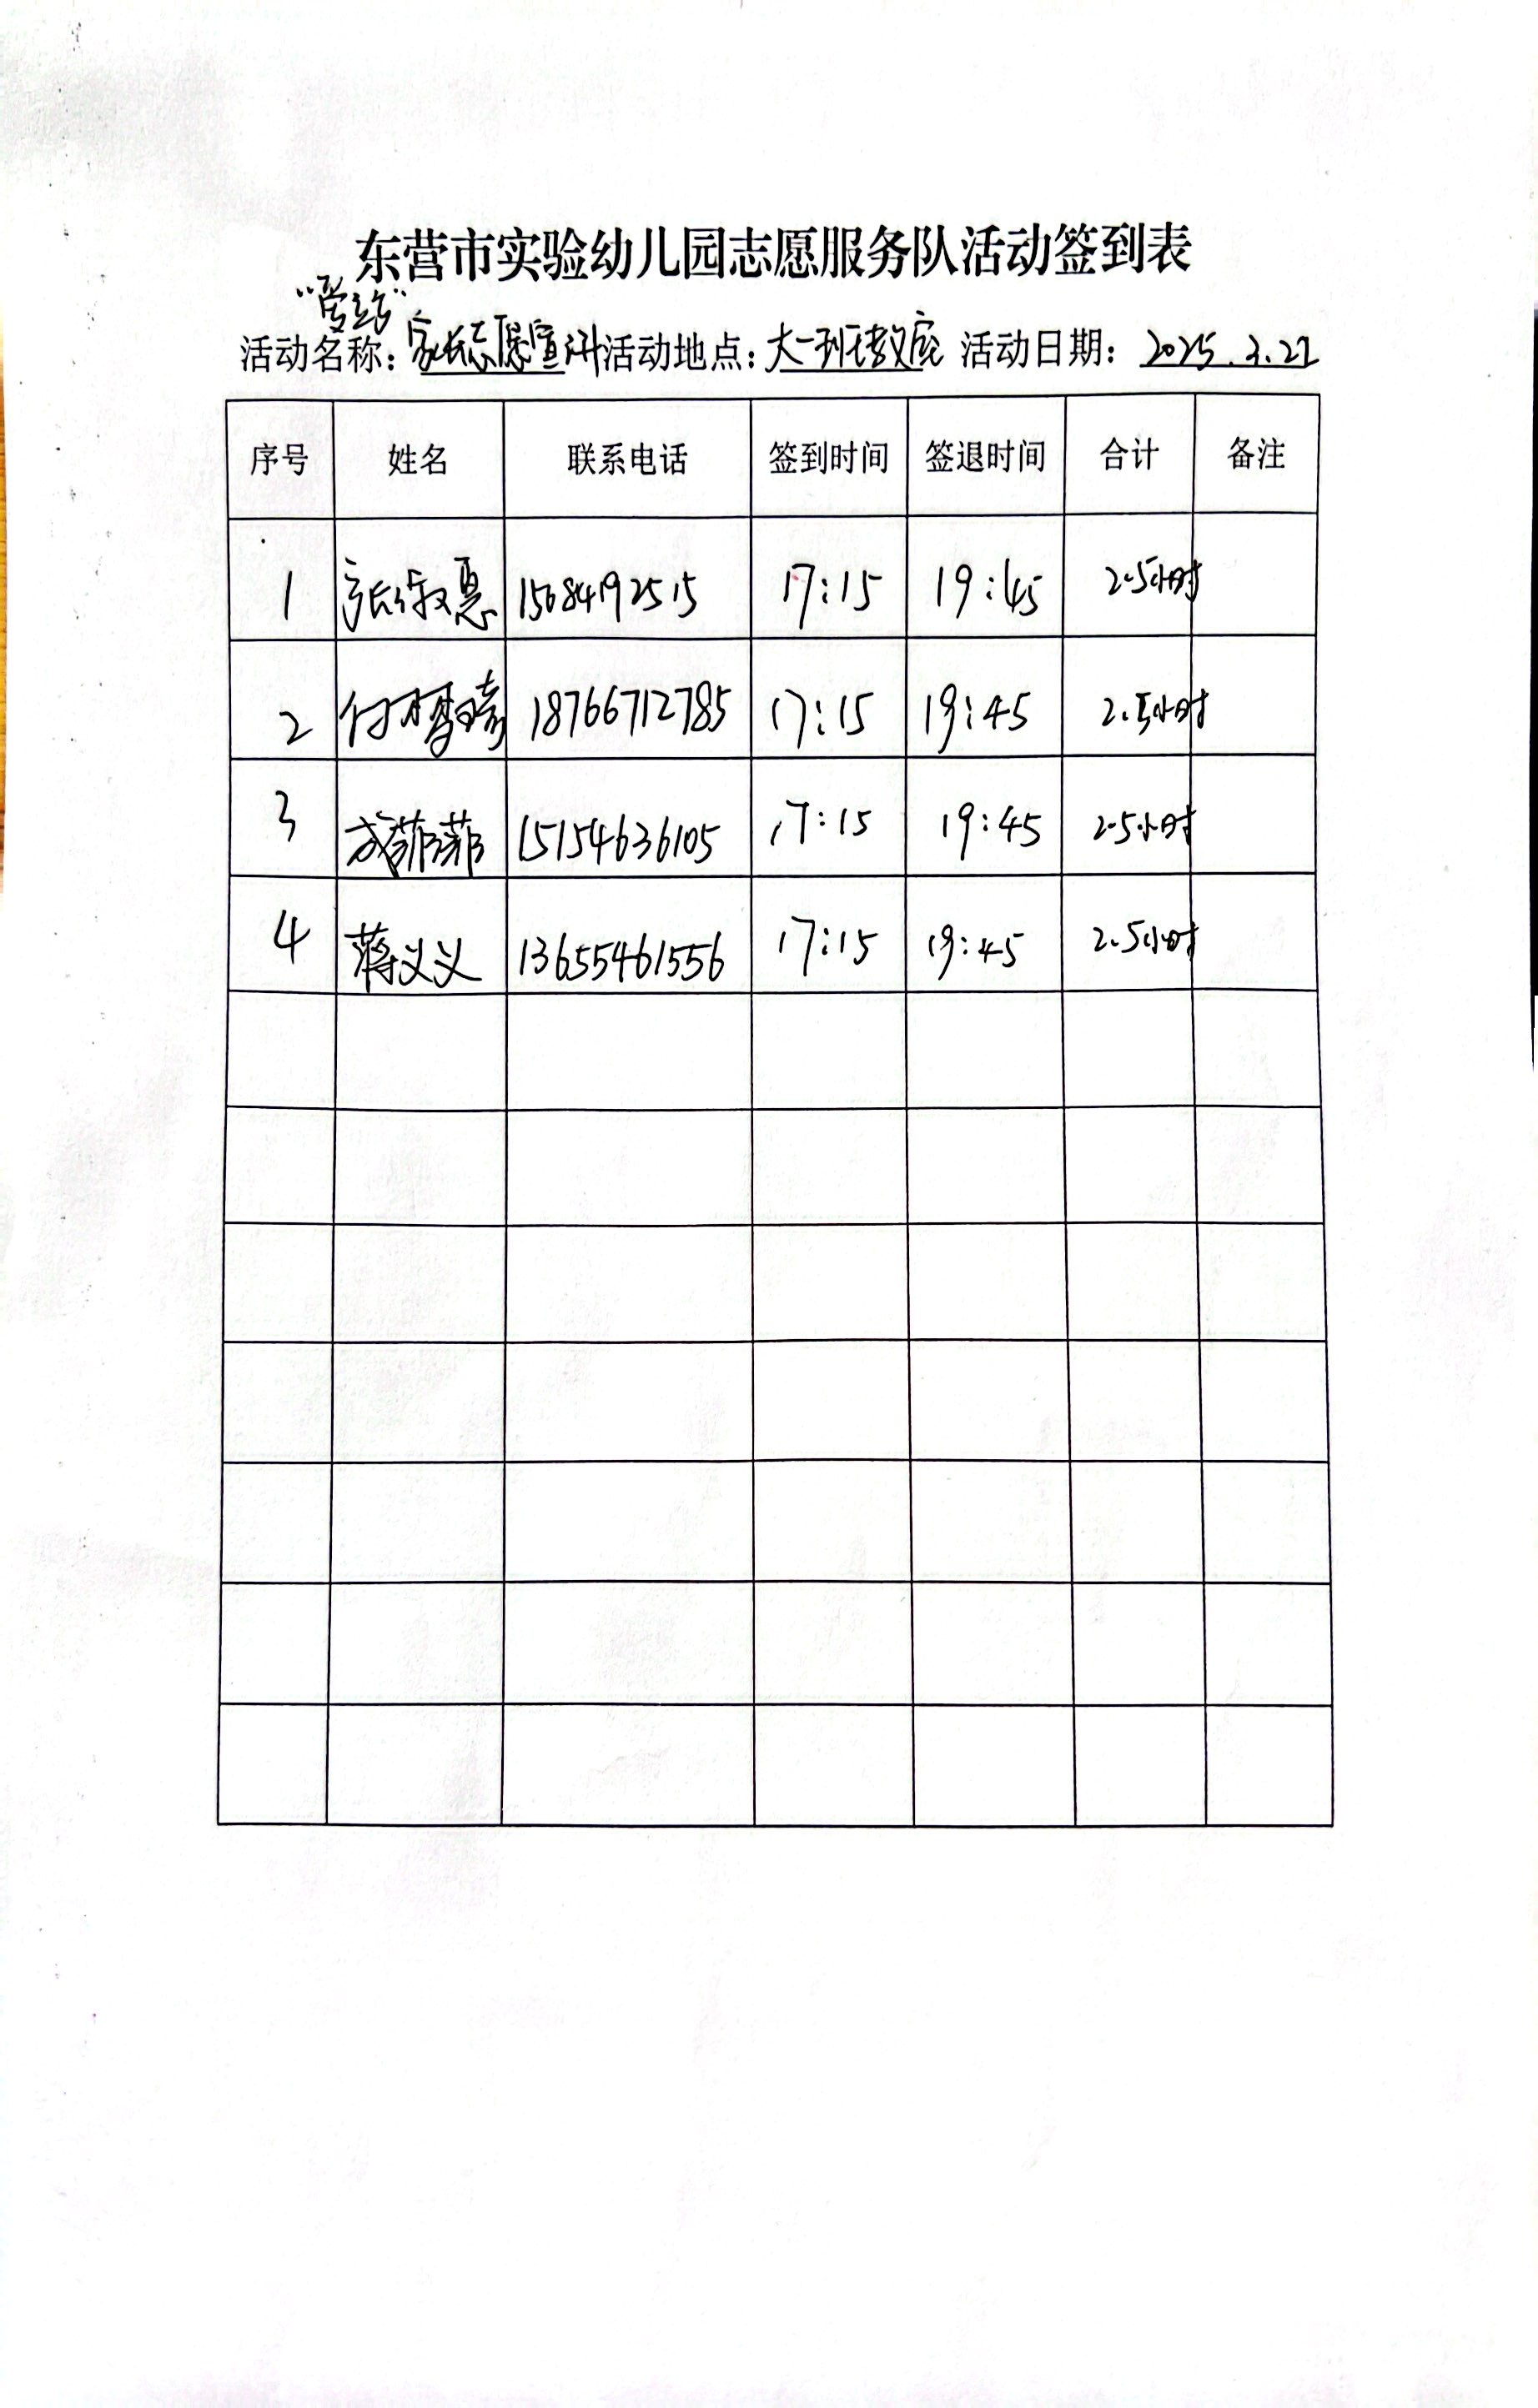 东营市实验幼儿园志愿服务队活动签到表
活动名称：家长志愿宣讲 活动地点：大一班教室 活动日期：2025.3.21
序号 姓名 联系电话 签到时间 签退时间 合计 备注
1 张淑惠 17:15 19:45 2.5小时
2 付梦琦 18766712785 17:15 19:45 2.5小时
3 成菲菲 15154636105 17:15 19:45 2.5小时
4 蒋义义 13655461556 17:15 19:45 2.5小时